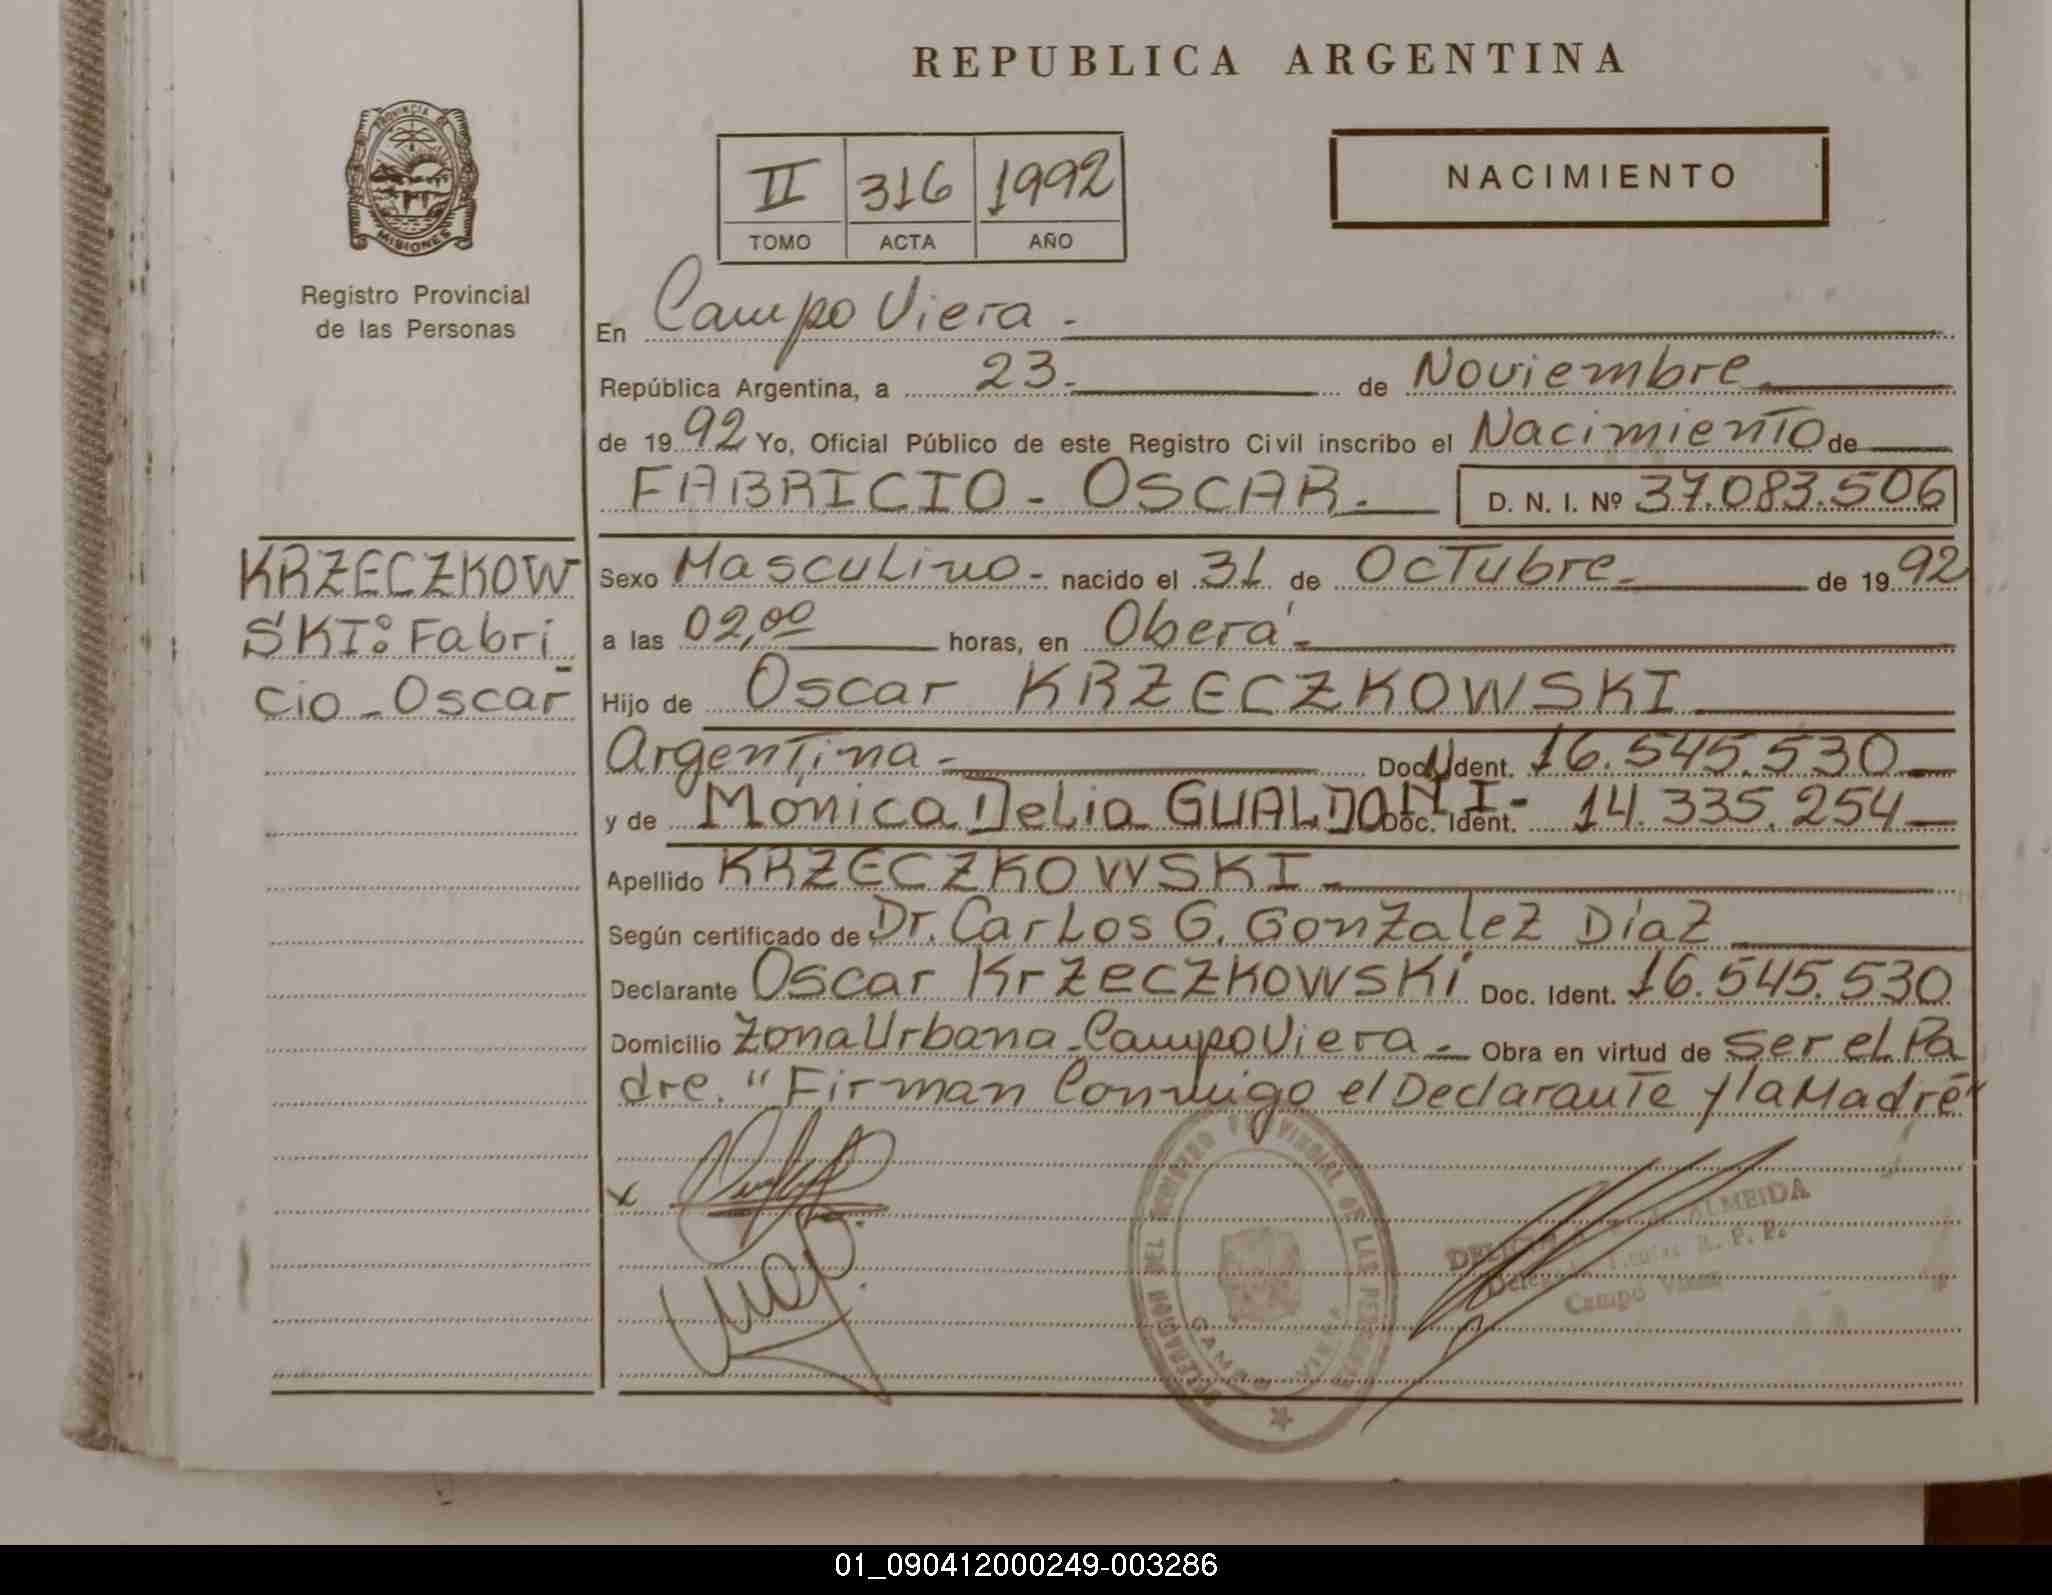 REPUBLICA ARGENTINA
PROVINCIA DE
MISIONES
Registro Provincial
de las Personas
II 316 1992
TOMO ACTA AÑO
NACIMIENTO
En Campo Viera -
República Argentina, a 23- de Noviembre
de 1992 Yo, Oficial Público de este Registro Civil inscribo el Nacimiento de
FABRICIO - OSCAR. D. N. I. Nº 37.083.506
KRZECZKOW
SKI: Fabri
cio - Oscar
Sexo Masculino - nacido el 31 de Octubre - de 1992
a las 02,00 horas, en Oberá -
Hijo de Oscar KRZECZKOWSKI
Argentina - Doc. Ident. 16.545.530
y de Mónica Delia GUALDONI - Doc. Ident. 14.335.254
Apellido KRZECZKOWSKI -
Según certificado de Dr. Carlos G. Gonzalez Díaz
Declarante Oscar Krzeczkowski Doc. Ident. 16.545.530
Domicilio Zona Urbana - Campo Viera - Obra en virtud de ser el Pa
dre. "Firman Conmigo el Declarante y la Madre"
ALMEIDA
R. P. P.
Campo Viera
DE LAS PERSONAS
CAMPO VIERA
01_090412000249-003286